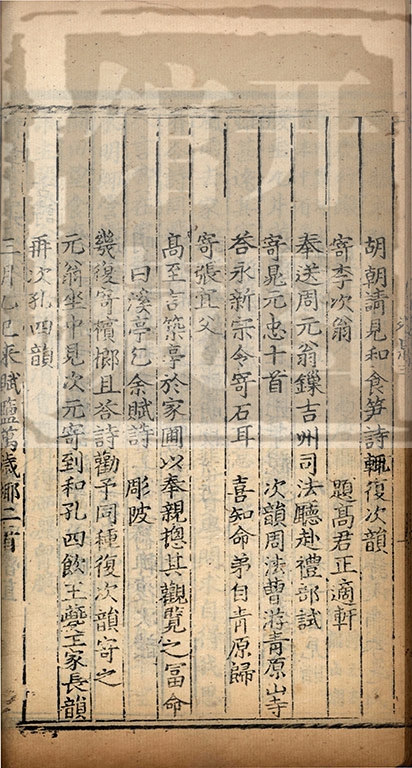 胡朝請見和食笋詩輒復次韻
寄李次翁 題髙君正適軒
奉送周元翁鏁吉州司法聽赴禮部試
寄晁元忠十首 次韻周法曹游青原山寺
荅永新宗令寄石耳 喜知命弟自青原歸
寄張宜父
髙至言築亭於家圃以奉親揔其觀覽之冨命
曰溪亭乞余賦詩 彫陂
幾復寄檳榔且荅詩勸予同種復次韻寄之
元翁坐中見次元寄到和孔四飲王夔玉家長韻
再次孔四韻
三月乙巳來賦塩萬歲鄉
二首